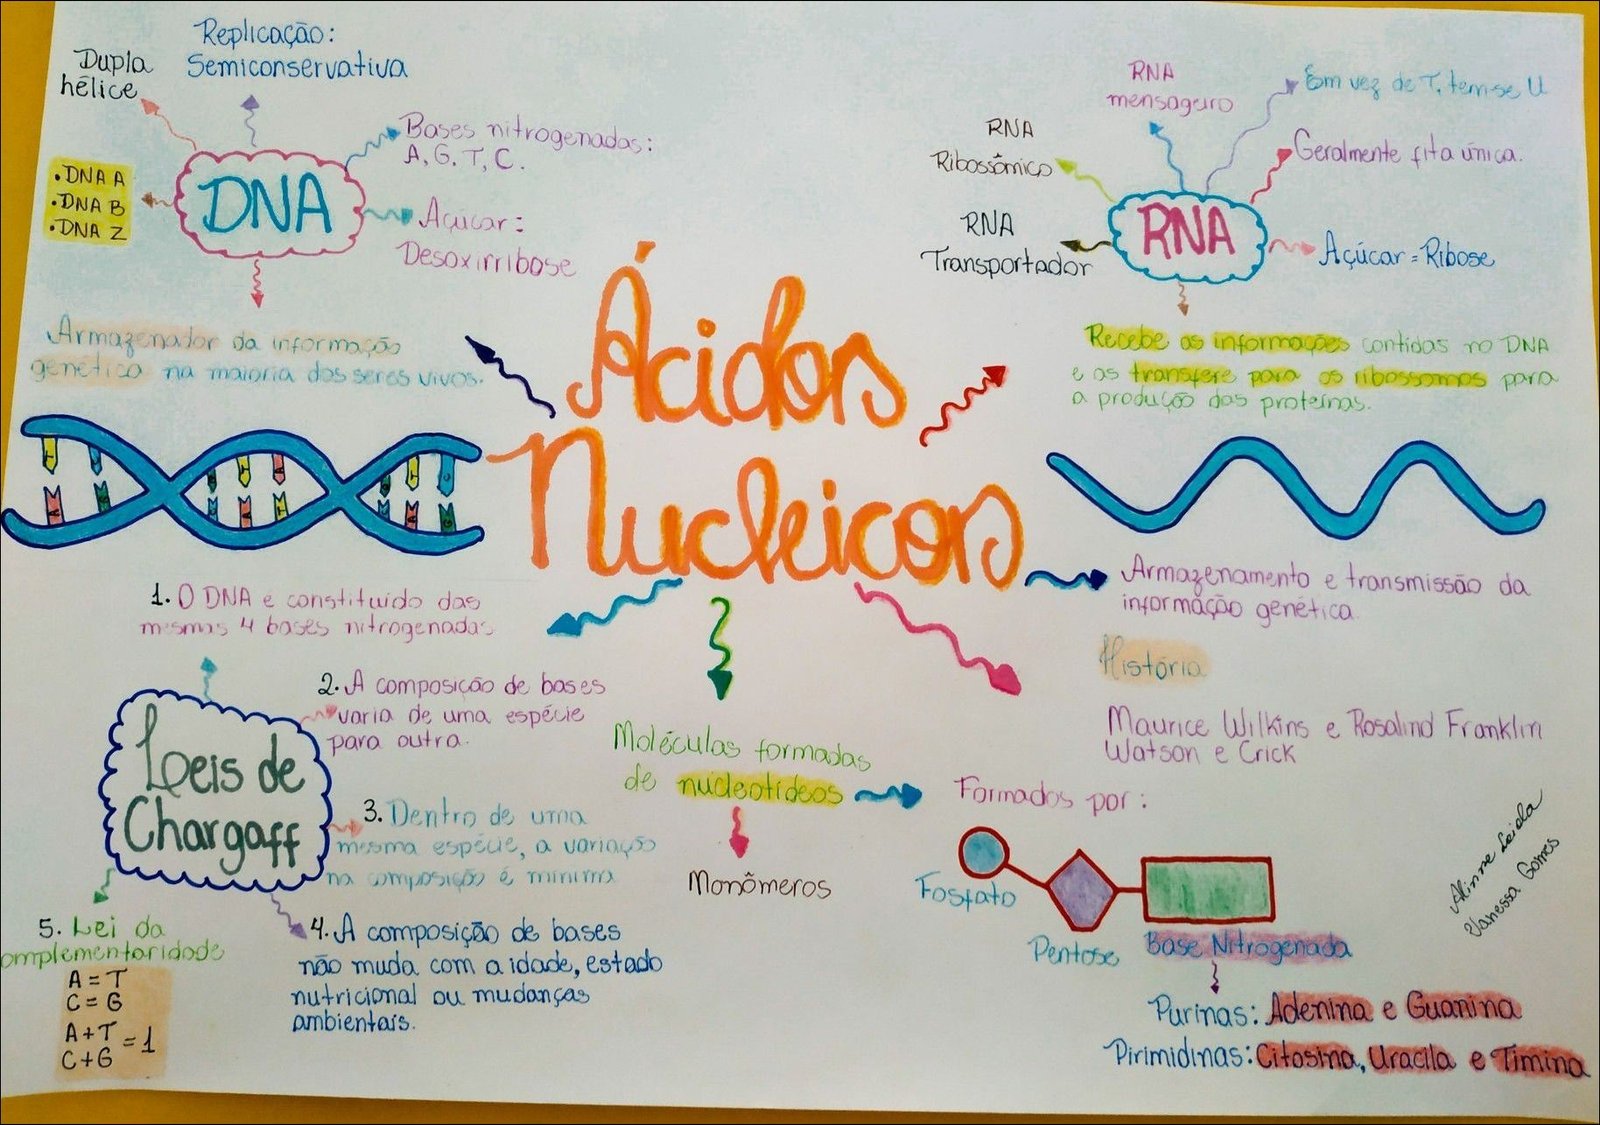 Replicação:
Semiconservativa
Dupla
hélice
Bases nitrogenadas:
A, G, T, C.
• DNA A
• DNA B
• DNA Z
DNA
Açúcar:
Desoxirribose
Armazenador da informação
genética na maioria dos seres vivos.
RNA
mensageiro
Em vez de T, tem-se U
RNA
Ribossômico
Geralmente fita única.
RNA
Transportador
RNA
Açúcar = Ribose
Recebe as informações contidas no DNA
e as transfere para os ribossomos para
a produção das proteínas.
Ácidos
Nucleicos
Armazenamento e transmissão da
informação genética.
História
Maurice Wilkins e Rosalind Franklin
Watson e Crick
1. O DNA e constituído das
mesmas 4 bases nitrogenadas
2. A composição de bases
varia de uma espécie
para outra.
Leis de
Chargaff
3. Dentro de uma
mesma espécie, a variação
na composição é minima
4. A composição de bases
não muda com a idade, estado
nutricional ou mudanças
ambientais.
5. Lei da
omplementaridade
A = T
C = G
A + T
C + G = 1
Moléculas formadas
de nucleotídeos
Monômeros
Formados por:
Fosfato
Pentose
Base Nitrogenada
Purinas: Adenina e Guanina
Pirimidinas: Citosina, Uracila e Timina
Alinne Leida
Vanessa Gomes